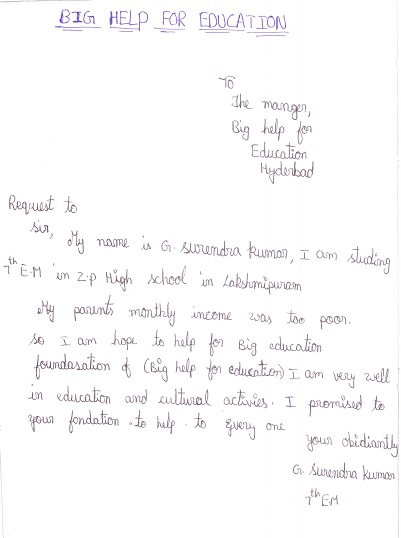 BIG HELP FOR EDUCATION
To
The manger,
Big help for
Education
Hyderbad
Request to
Sir, My name is G. Surendra kumar, I am studing
7th E.M in Z.P High school in Lakshmipuram
My parents monthly income was too poor.
so I am hope to help for Big education
foundasation of (Big help for education) I am very well
in education and cultural activies. I promised to
your fondation to help to every one
your obidiantly
G. Surendra kumar
7th E.M